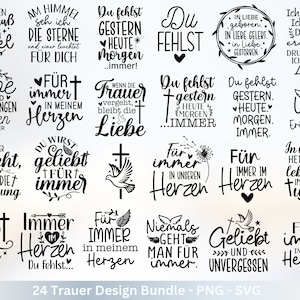 AM HIMMEL
seh ich
DIE STERNE
und einer leuchtet
FÜR DICH
Du fehlst
GESTERN
HEUTE
morgen
...immer!
Du
FEHLST
IN LIEBE
geboren.
IN LIEBE GELEBT.
in Liebe
GESTORBEN.
FÜR
immer
IN MEINEM
Herzen
WENN DIE
Trauer
vergeht,
bleibt die
Liebe
Du fehlst
gestern
HEUTE
MORGEN
...IMMER
Du fehlst.
GESTERN.
HEUTE.
MORGEN.
IMMER.
DU WIRST
geliebt
FÜR
immer
Für
immer
IN UNSEREN
Herzen
FÜR
IMMER IM
Herzen
Immer
IM
Herzen
Du fehlst...
Für
IMMER
in meinem
Herzen
Niemals
GEHT
MAN FÜR
immer.
Geliebt
UND
UNVERGESSEN
24 Trauer Design Bundle - PNG - SVG